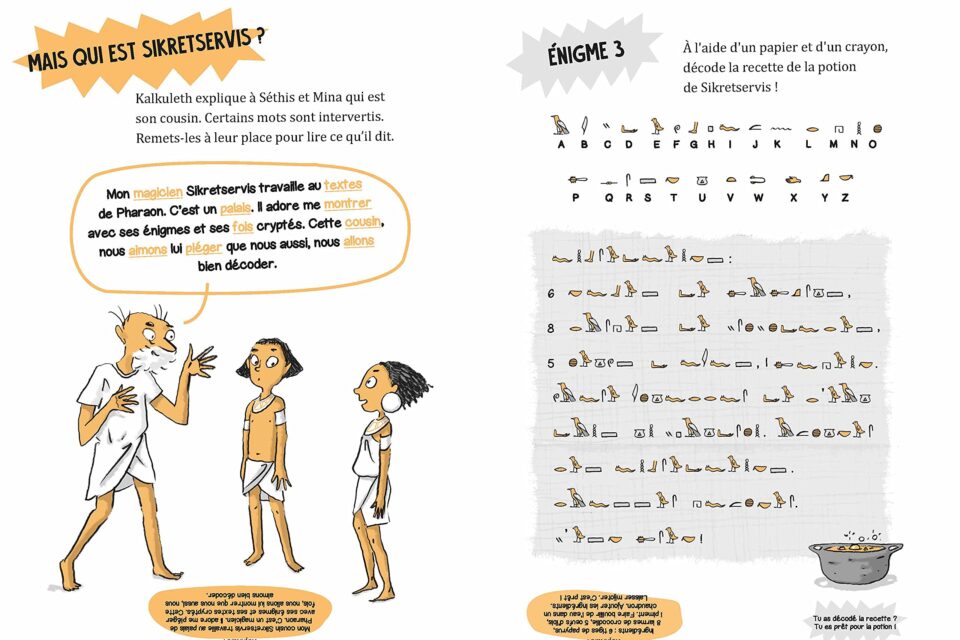 MAIS QUI EST SIKRETSERVIS ?
Kalkuleth explique à Séthis et Mina qui est
son cousin. Certains mots sont intervertis.
Remets-les à leur place pour lire ce qu'il dit.
Mon magicien Sikretservis travaille au textes
de Pharaon. C'est un palais. Il adore me montrer
avec ses énigmes et ses fois cryptés. Cette cousin,
nous aimons lui piéger que nous aussi, nous allons
bien décoder.
Mon cousin Sikretservis travaille au palais de
Pharaon. C'est un magicien. Il adore me piéger
avec ses énigmes et ses textes cryptés. Cette
fois, nous allons lui montrer que nous aussi, nous
aimons bien décoder.
ÉNIGME 3
À l'aide d'un papier et d'un crayon,
décode la recette de la potion
de Sikretservis !
A B C D E F G H I J K L M N O
P Q R S T U V W X Y Z
:
6 ,
8 ,
5 , 1 .
'
.
.
.
' !
Ingrédients : 6 tiges de papyrus,
8 larmes de crocodile, 5 oeufs d'ibis,
1 piment. Faire bouillir de l'eau dans un
chaudron. Ajouter les ingrédients.
Laisser mijoter. C'est prêt !
Tu as décodé la recette ?
Tu es prêt pour la potion !